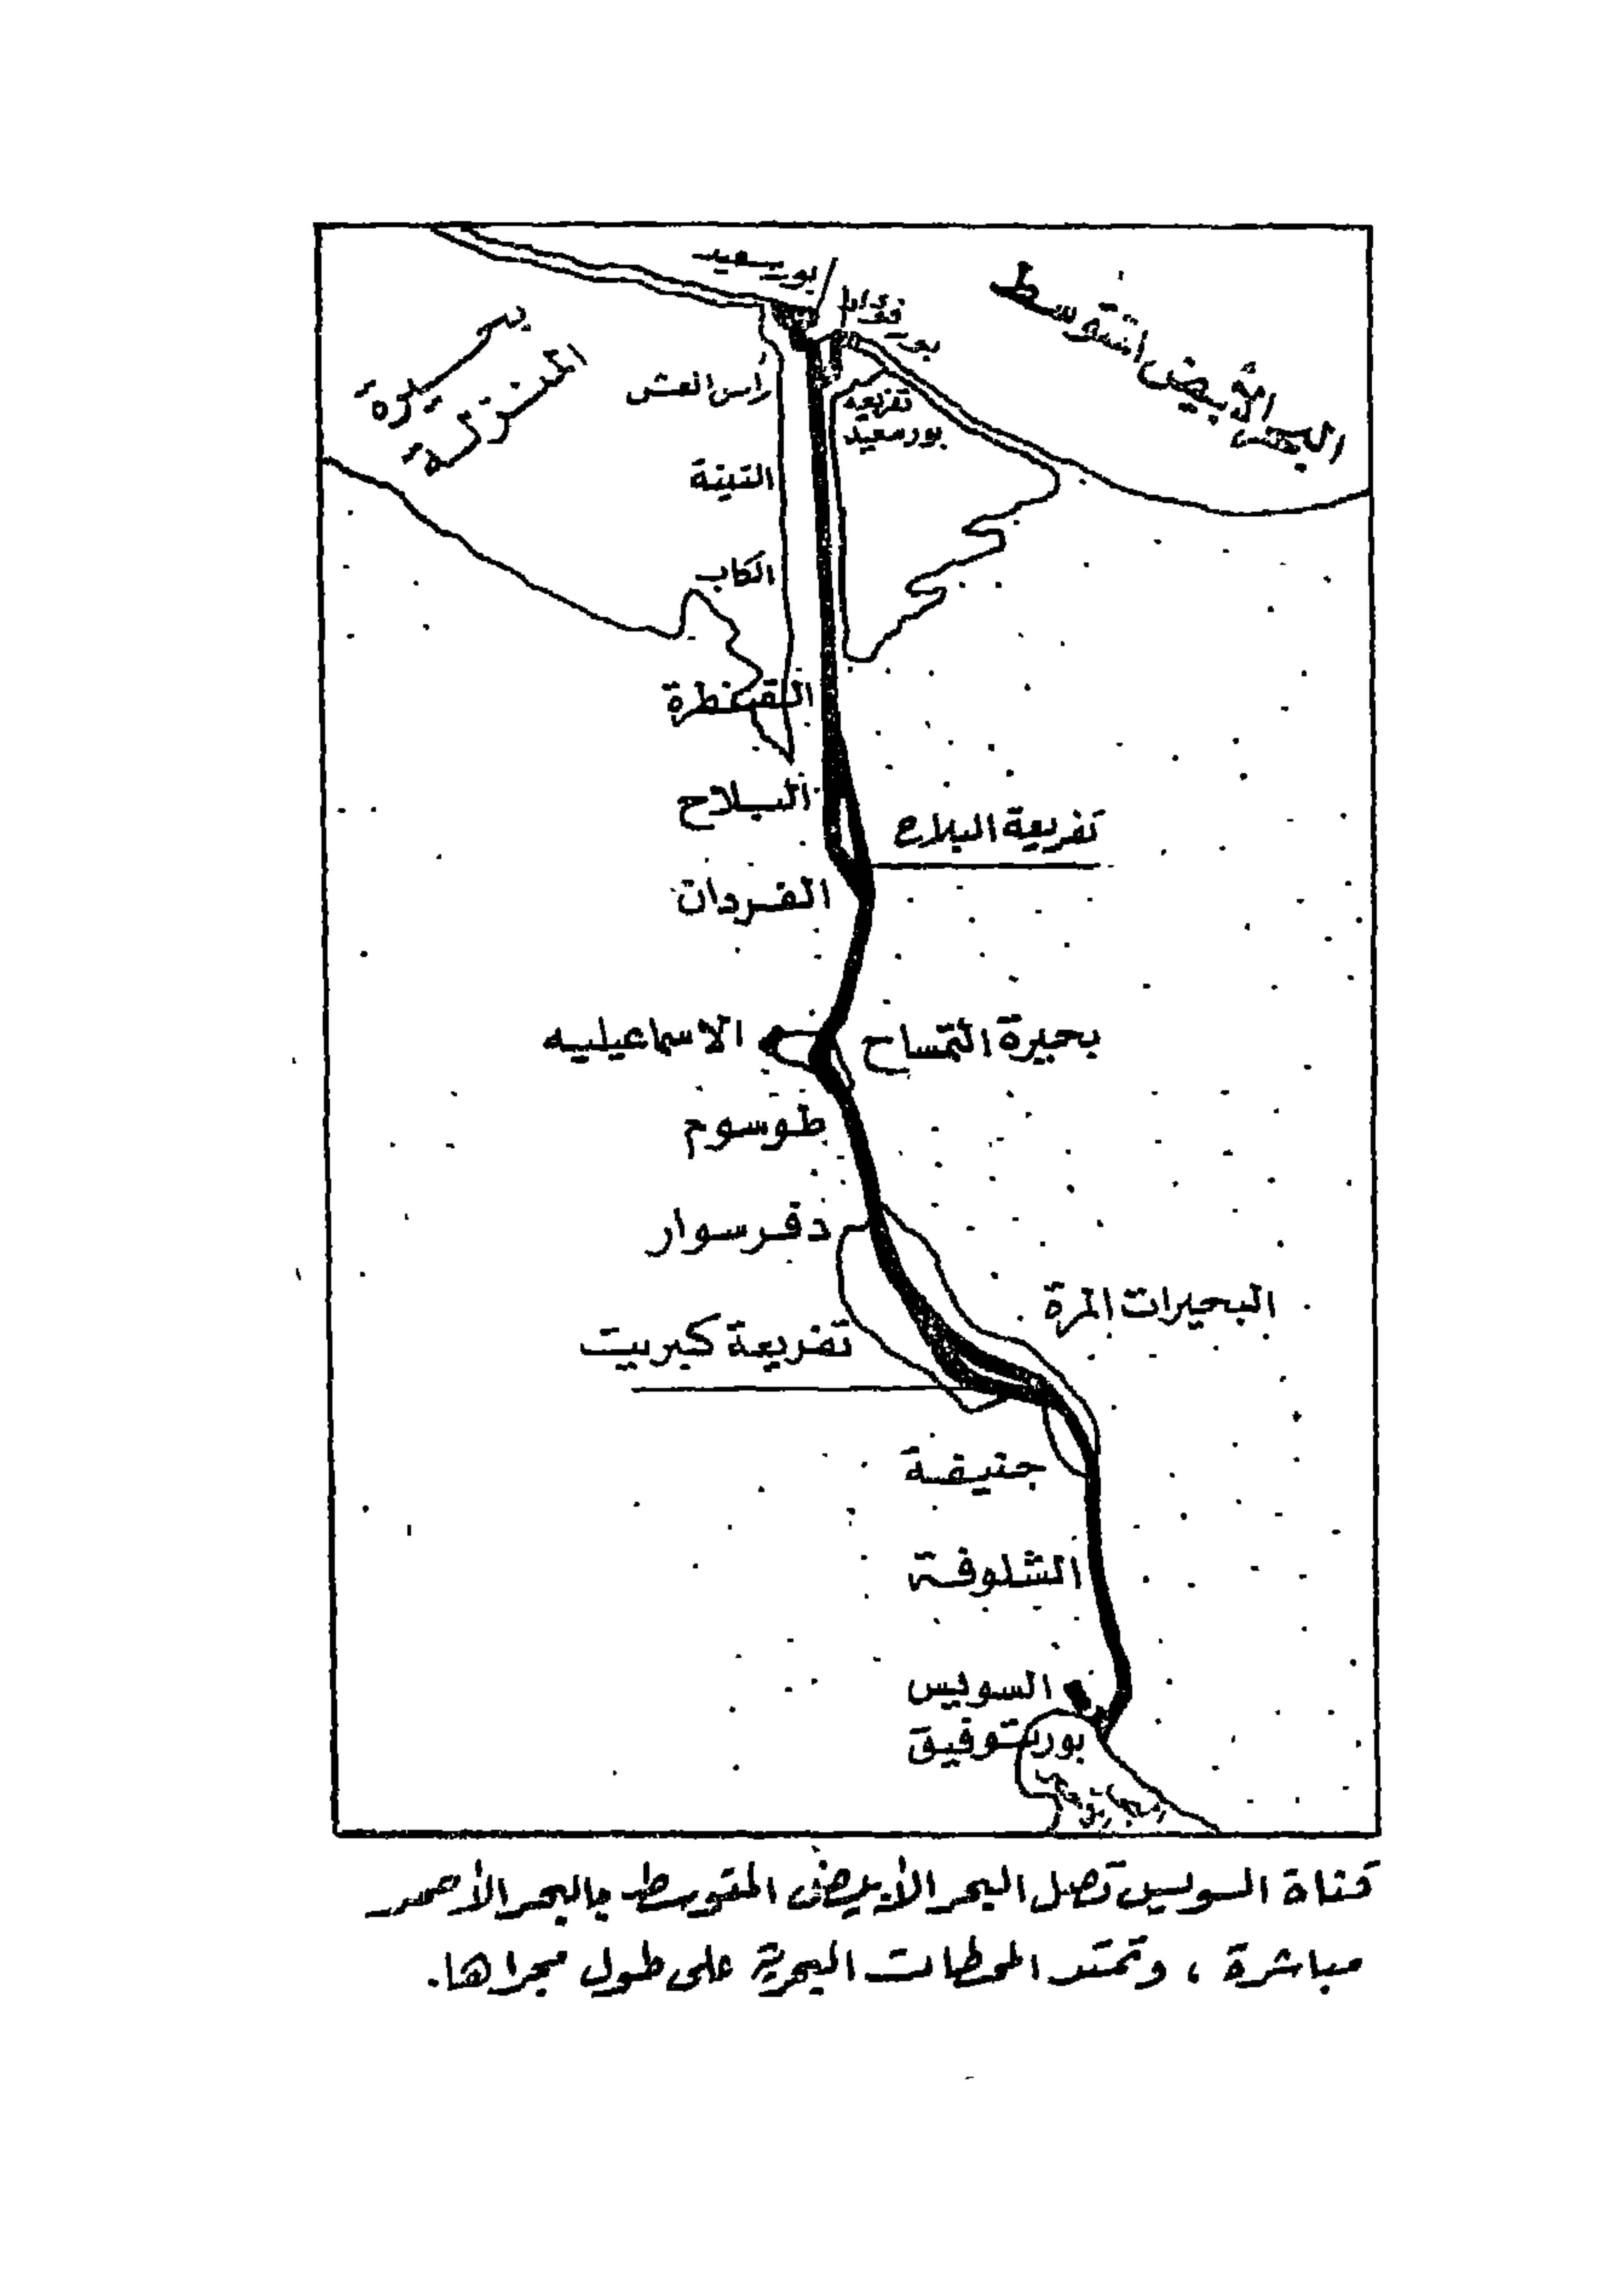 البحر الأبيض المتوسط
بورسعيد
بور فؤاد
بحيرة
المنزلة
راس العش
تفريعه
بورسعيد
التينة
الكاب
القنطرة
البلاح
تفريعة البلاح
الفردان
الاسماعيليه
بحيرة التمساح
طوسوم
دفرسوار
البحيرات المرة
تفريعة كبريت
جنيفة
الشلوفة
السويس
بورتوفيق
قناة السويس تصل البحر الأبيض المتوسط بالبحر الأحمر
مباشرة ، وتمتد المحطات البحرية على طول مجراها.